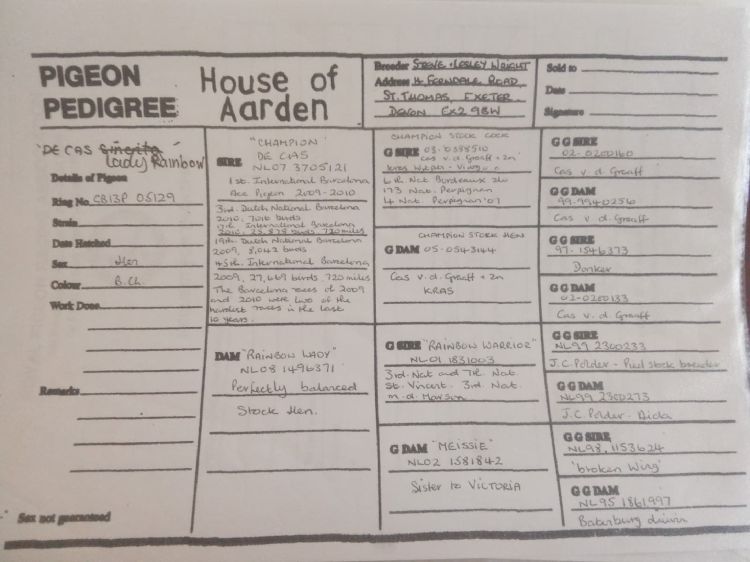 PIGEON
PEDIGREE
House of
Aarden
Breeder STEVE + LESLEY WRIGHT
Address 14 FERNDALE ROAD
ST. THOMAS, EXETER.
DEVON EX2 9BW
Sold to
Date
Signature
"DE CAS
Lady Rainbow"
Details of Pigeon
Ring No. GB13P 05129
Strain
Date Hatched
Sex Hen
Colour B.Ch.
Work Done
Remarks
Sex not guaranteed
"CHAMPION"
SIRE DE CAS
NL07 3705121
1st. International Barcelona
Ace Pigeon 2009-2010
3rd. Dutch National Barcelona
2010, birds
International Barcelona
2010. 25,878 birds 720 miles
19th. Dutch National Barcelona
2009, 8,042 birds
45th. International Barcelona
2009, 27,669 birds, 720 miles
The Barcelona races of 2009
and 2010 were two of the
hardest races in the last
10 years.
DAM "RAINBOW LADY"
NL08 1496371
Perfectly balanced
Stock Hen.
CHAMPION STOCK COCK
G SIRE 03-0388510
cas v. d. Graaff + Zn
Nat Bordeaux
173 Nat. Perpignan
4 Nat Perpignan '07
CHAMPION STOCK HEN
G DAM 05-0543144
Cas v. d. Graaff + Zn
KRAS
G SIRE "RAINBOW WARRIOR"
NL01 1831003
3rd. Nat and 7th. Nat
St. Vincent. 3rd. Nat.
m. d. Marsan
G DAM "MEISSIE"
NL02 1581842
Sister to VICTORIA
G G SIRE
02-0200160
Cas v. d. Graaff
G G DAM
99-9940256
Cas v. d. Graaff
G G SIRE
97-1546373
Donker
G G DAM
02-0200133
Cas v. d. Graaff
G G SIRE
NL99 2300233
J.C. Polder - Paul stock breeder
G G DAM
NL99 2300273
J.C Polder - Aida
G G SIRE
NL98, 1153624
'broken Wing'
G G DAM
NL95 1861997
Batenburg